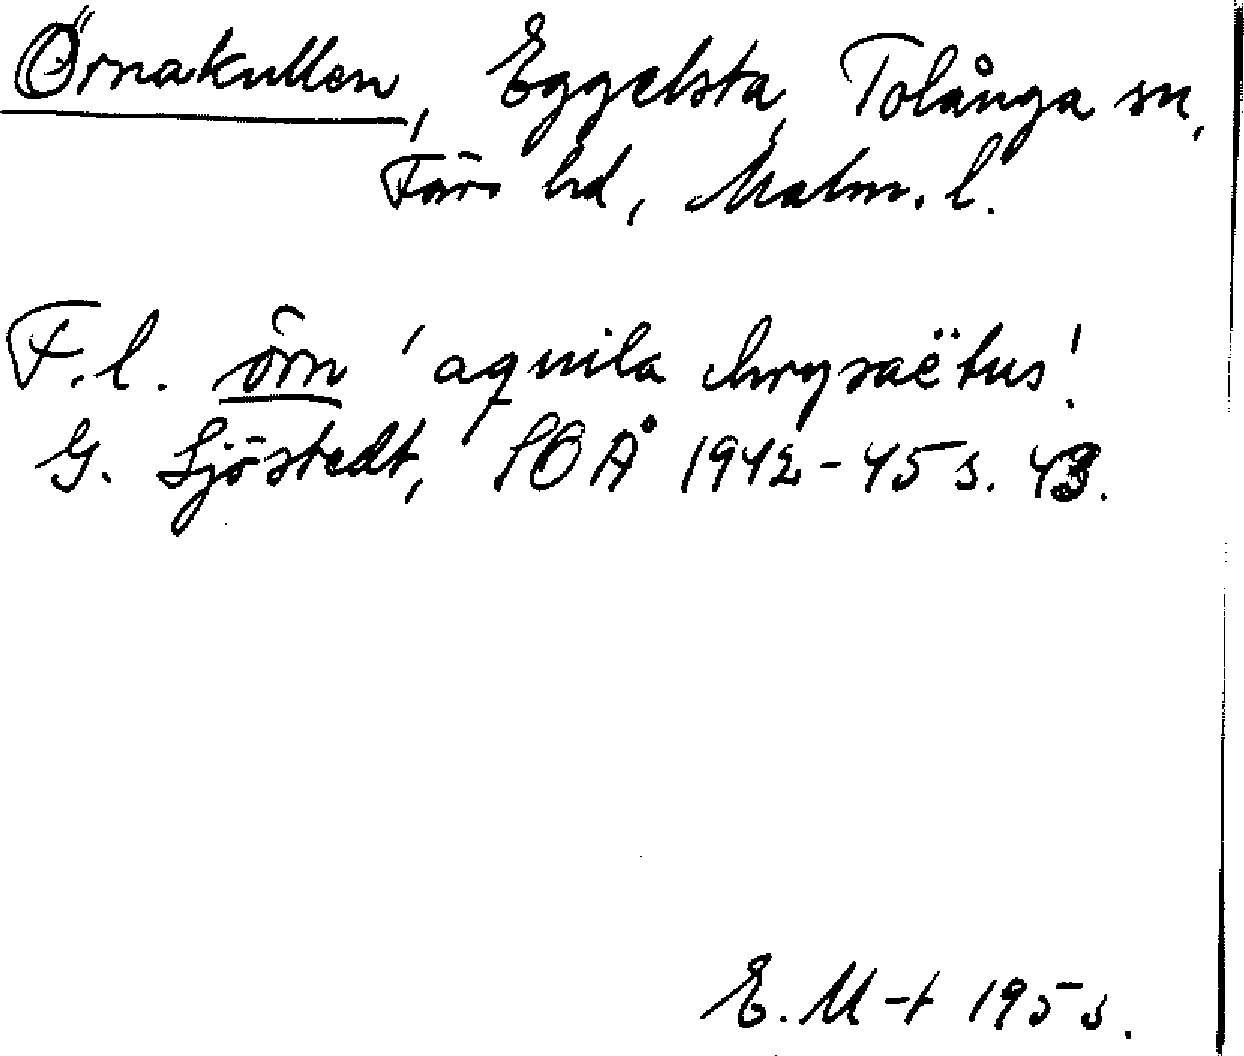 Örnakullen, Eggelsta, Tolånga sn,
Färs hd, Malm. l.
F.l. örn 'aquila chrysaëtus'.
G. Sjöstedt, SOÅ 1942-45 s. 43.
E. M-t 1955.